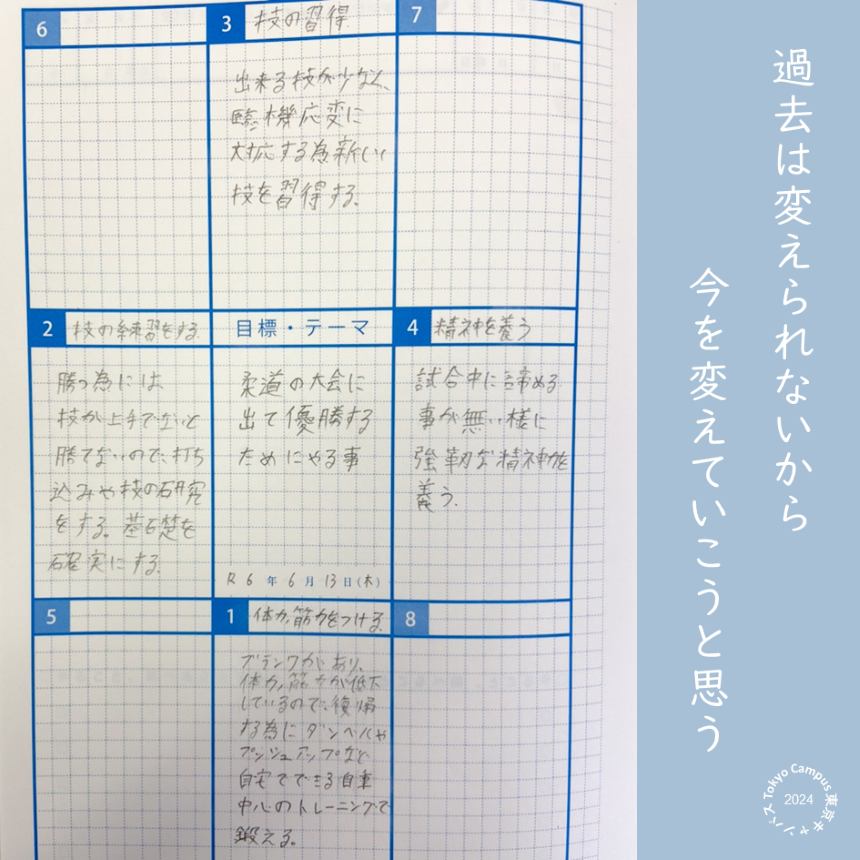 6
3 技の習得
出来る技が少なく、
臨機応変に
対応する為新しい
技を習得する。
7
2 技の練習をする
勝つ為には
技が上手でないと
勝てないので、打ち
込みや技の研究
をする。基礎を
確実にする。
目標・テーマ
柔道の大会に
出て優勝する
ためにやる事
R6年6月13日(木)
4 精神を養う
試合中に諦める
事が無い様に
強靭な精神を
養う。
5
1 体力、筋力をつける
ブランクがあり、
体力、筋力が低下
しているので、復帰
する為にダンベルや
プッシュアップなど
自宅でできる自重
中心のトレーニングで
鍛える。
8
過去は変えられないから
今を変えていこうと思う
Tokyo Campus 東京キャンパス
2024